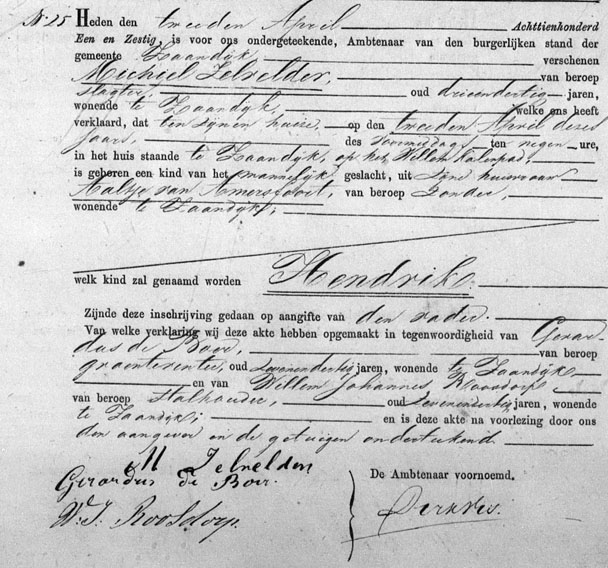 No 25 Heden den tweeden April Achttienhonderd
Een en Zestig, is voor ons ondergeteekende, Ambtenaar van den burgerlijken stand der
gemeente Zaandijk verschenen
Michiel Zelvelder, van beroep
slagter, oud drieendertig jaren,
wonende te Zaandijk welke ons heeft
verklaard, dat ten zijnen huize, op den tweeden April dezes
jaars, des voormiddags ten negen ure,
in het huis staande te Zaandijk, op het Willem
is geboren een kind van het mannelijk geslacht, uit zijne huisvrouw
Aaltje van Amersfoort, van beroep zonder,
wonende te Zaandijk;
welk kind zal genaamd worden Hendrik
Zijnde deze inschrijving gedaan op aangifte van den vader.
Van welke verklaring wij deze akte hebben opgemaakt in tegenwoordigheid van Gerar-
dus de Boer, van beroep
oud zevenendertig jaren, wonende te Zaandijk
en van Willem Johannes Roosdorp
van beroep Stalhouder, oud zevenendertig jaren, wonende
te Zaandijk; en is deze akte na voorlezing door ons
den aangever en de getuigen onderteekend
M Zelvelder
Gerardus de Boer.
W. J. Roosdorp.
De Ambtenaar voornoemd.